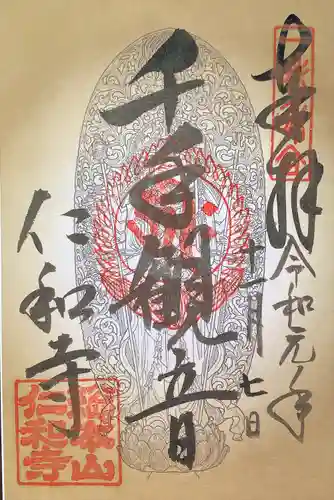 奉拝
令和元年
十一月七日
千手觀音
仁和寺
總本山
仁和寺